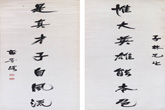 子林先生
惟大英雄能本色
是真才子自風流